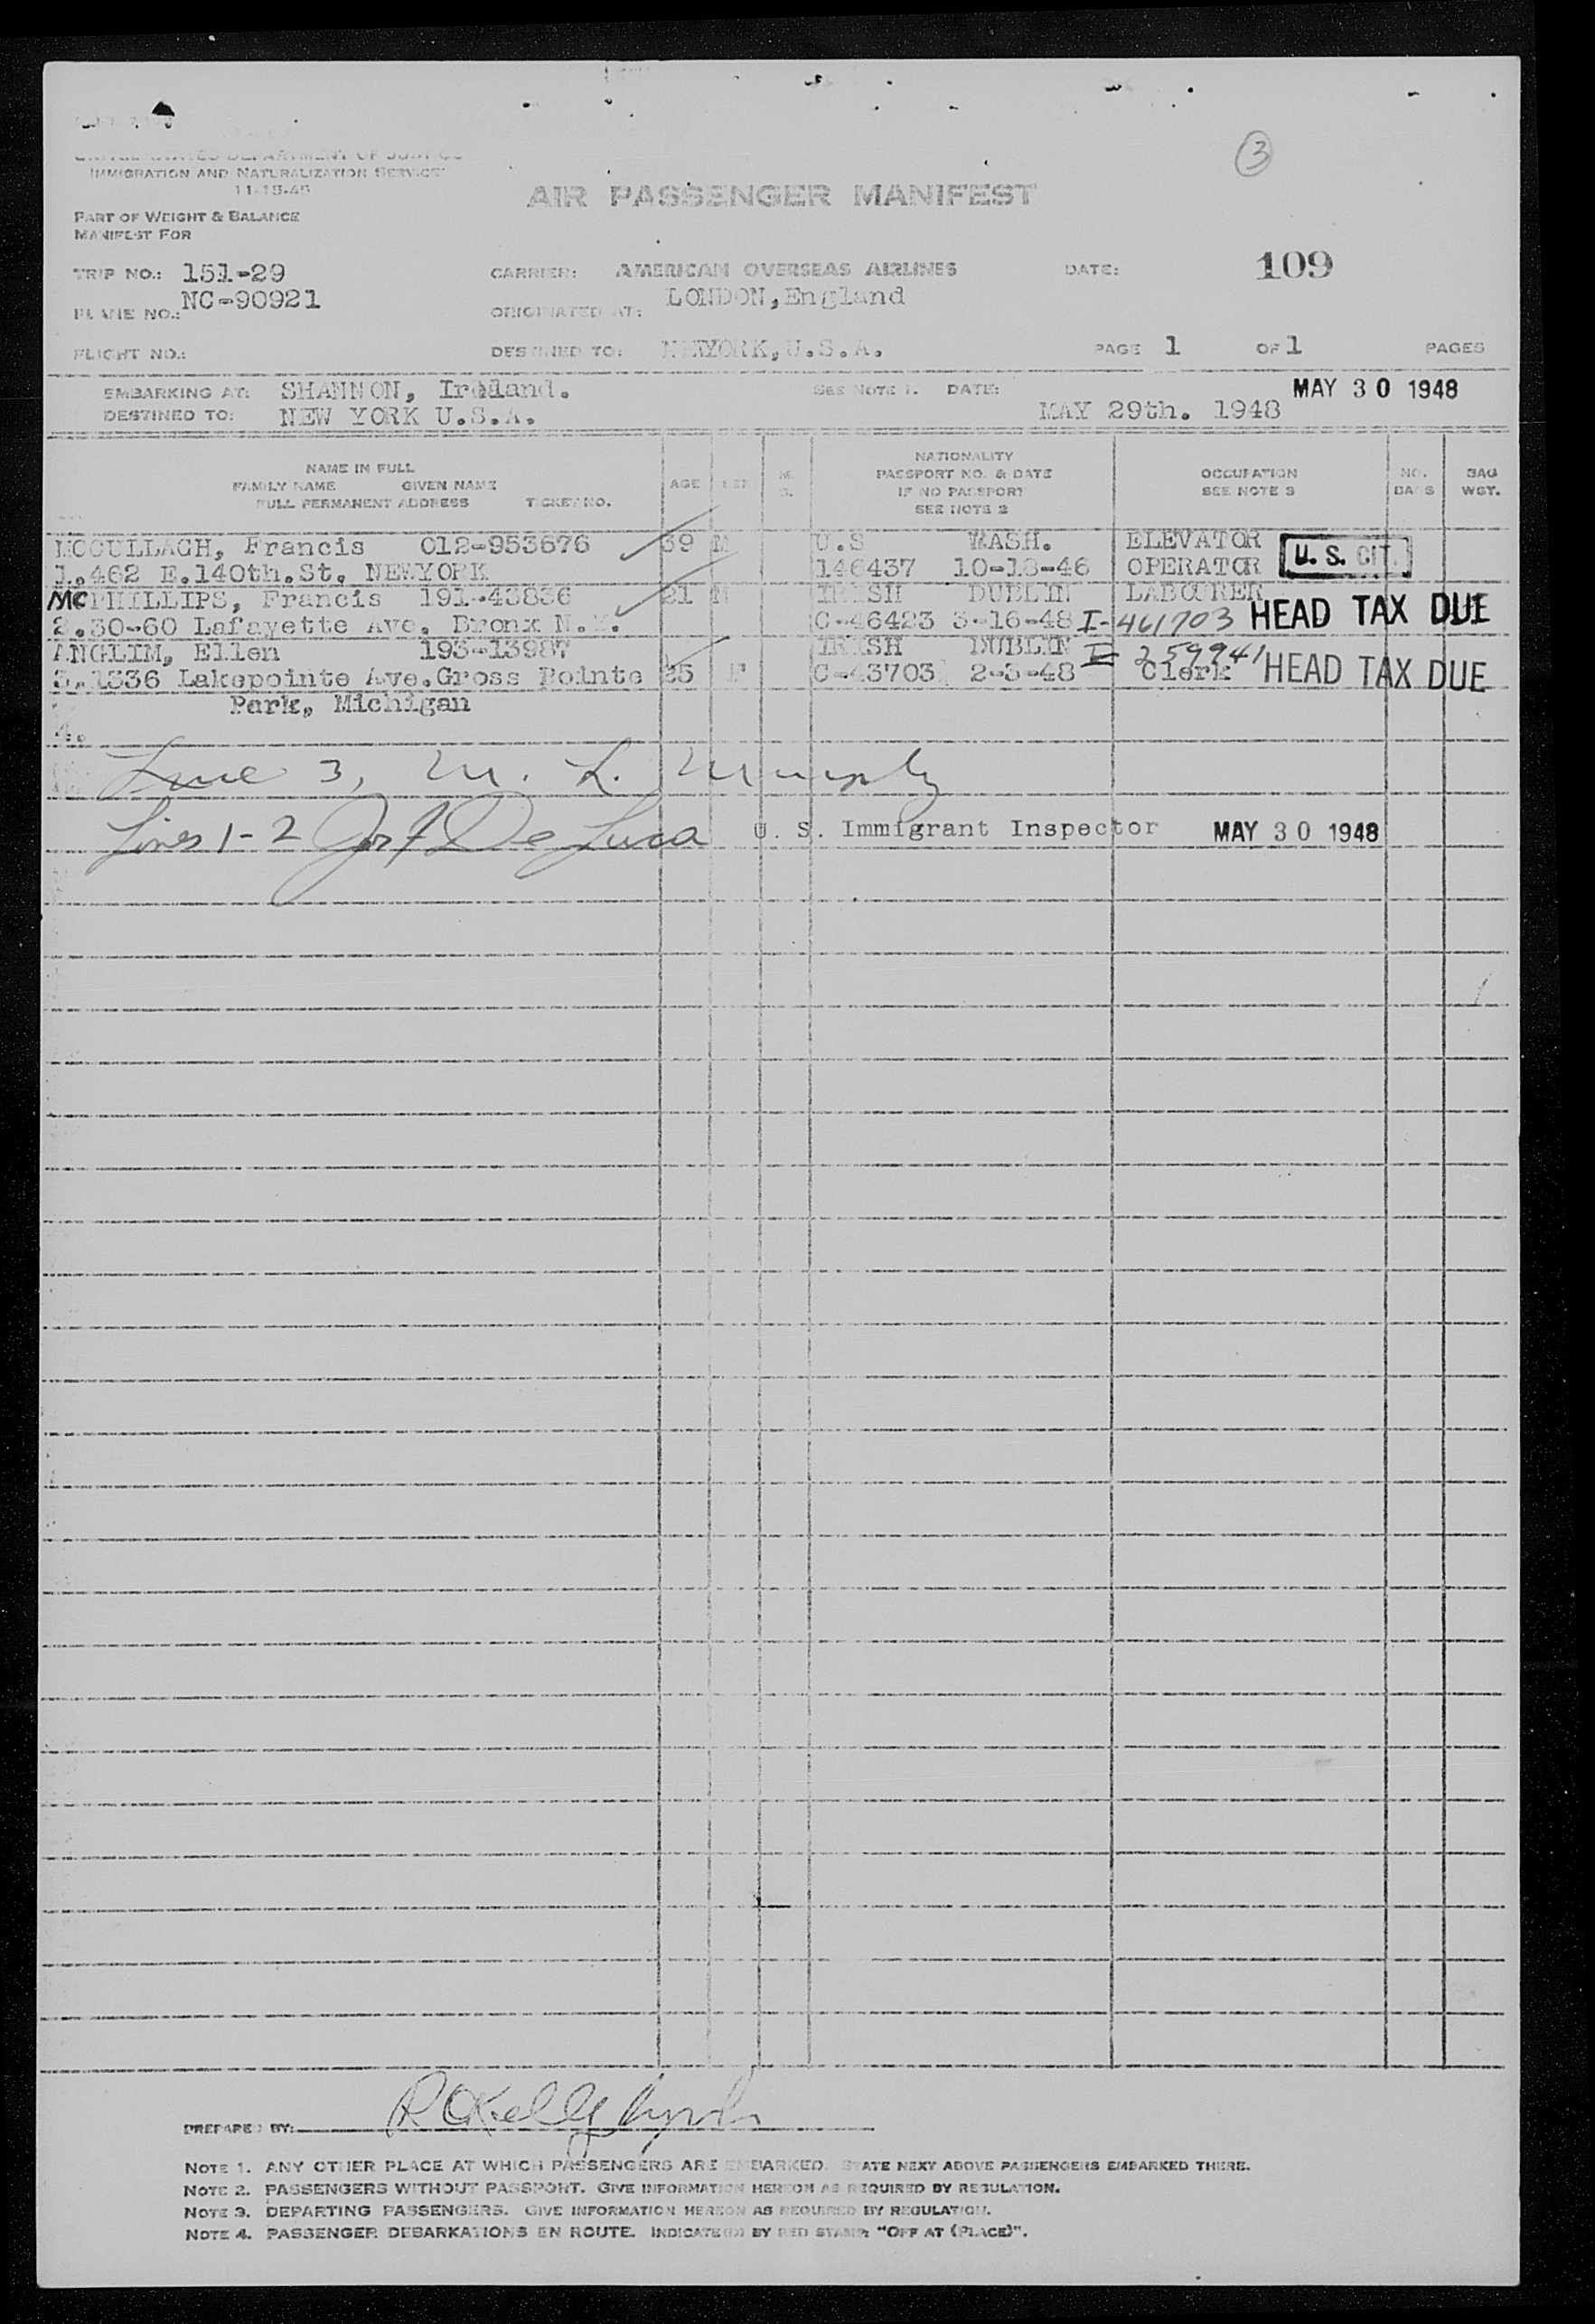 ③
UNITED STATES DEPARTMENT OF JUSTICE
IMMIGRATION AND NATURALIZATION SERVICE
11-15-45
AIR PASSENGER MANIFEST
PART OF WEIGHT & BALANCE
MANIFEST FOR
TRIP NO.: 151-29 CARRIER: AMERICAN OVERSEAS AIRLINES DATE: 109
PLANE NO.: NC-90921 ORIGINATED AT: LONDON, England
FLIGHT NO.: DESTINED TO: NEWYORK, U.S.A. PAGE 1 OF 1 PAGES
EMBARKING AT: SHANNON, Ireland. SEE NOTE 1. DATE: MAY 29th. 1948 MAY 30 1948
DESTINED TO: NEW YORK U.S.A.
NAME IN FULL
FAMILY NAME GIVEN NAME
FULL PERMANENT ADDRESS TICKET NO.
AGE SEX
NATIONALITY
PASSPORT NO. & DATE
IF NO PASSPORT
SEE NOTE 2
OCCUPATION
SEE NOTE 3
NO.
BAGS
BAG
WGT.
MCCULLAGH, Francis 012-953676 39 M U.S WASH. ELEVATOR
1.462 E.140th.St. NEWYORK 146437 10-18-46 OPERATOR U. S. CIT.
MCPHILLIPS, Francis 191-43836 21 M IRISH DUBLIN LABOURER
2.30-60 Lafayette Ave. Bronx N.Y. C-46423 3-16-48 I-461703 HEAD TAX DUE
ANGLIM, Ellen 193-13987 IRISH DUBLIN 259941
3.1336 Lakepointe Ave.Gross Pointe 25 F C-43703 2-3-48 Clerk HEAD TAX DUE
Park, Michigan
4.
Line 3, M. L. Murphy
Lines 1-2 Jos F De Luca U. S. Immigrant Inspector MAY 30 1948
PREPARED BY:
NOTE 1. ANY OTHER PLACE AT WHICH PASSENGERS ARE EMBARKED. STATE NEXT ABOVE PASSENGERS EMBARKED THERE.
NOTE 2. PASSENGERS WITHOUT PASSPORT. GIVE INFORMATION HEREON AS REQUIRED BY REGULATION.
NOTE 3. DEPARTING PASSENGERS. GIVE INFORMATION HEREON AS REQUIRED BY REGULATION.
NOTE 4. PASSENGER DEBARKATIONS EN ROUTE. INDICATE BY RED STAMP "OFF AT (PLACE)".